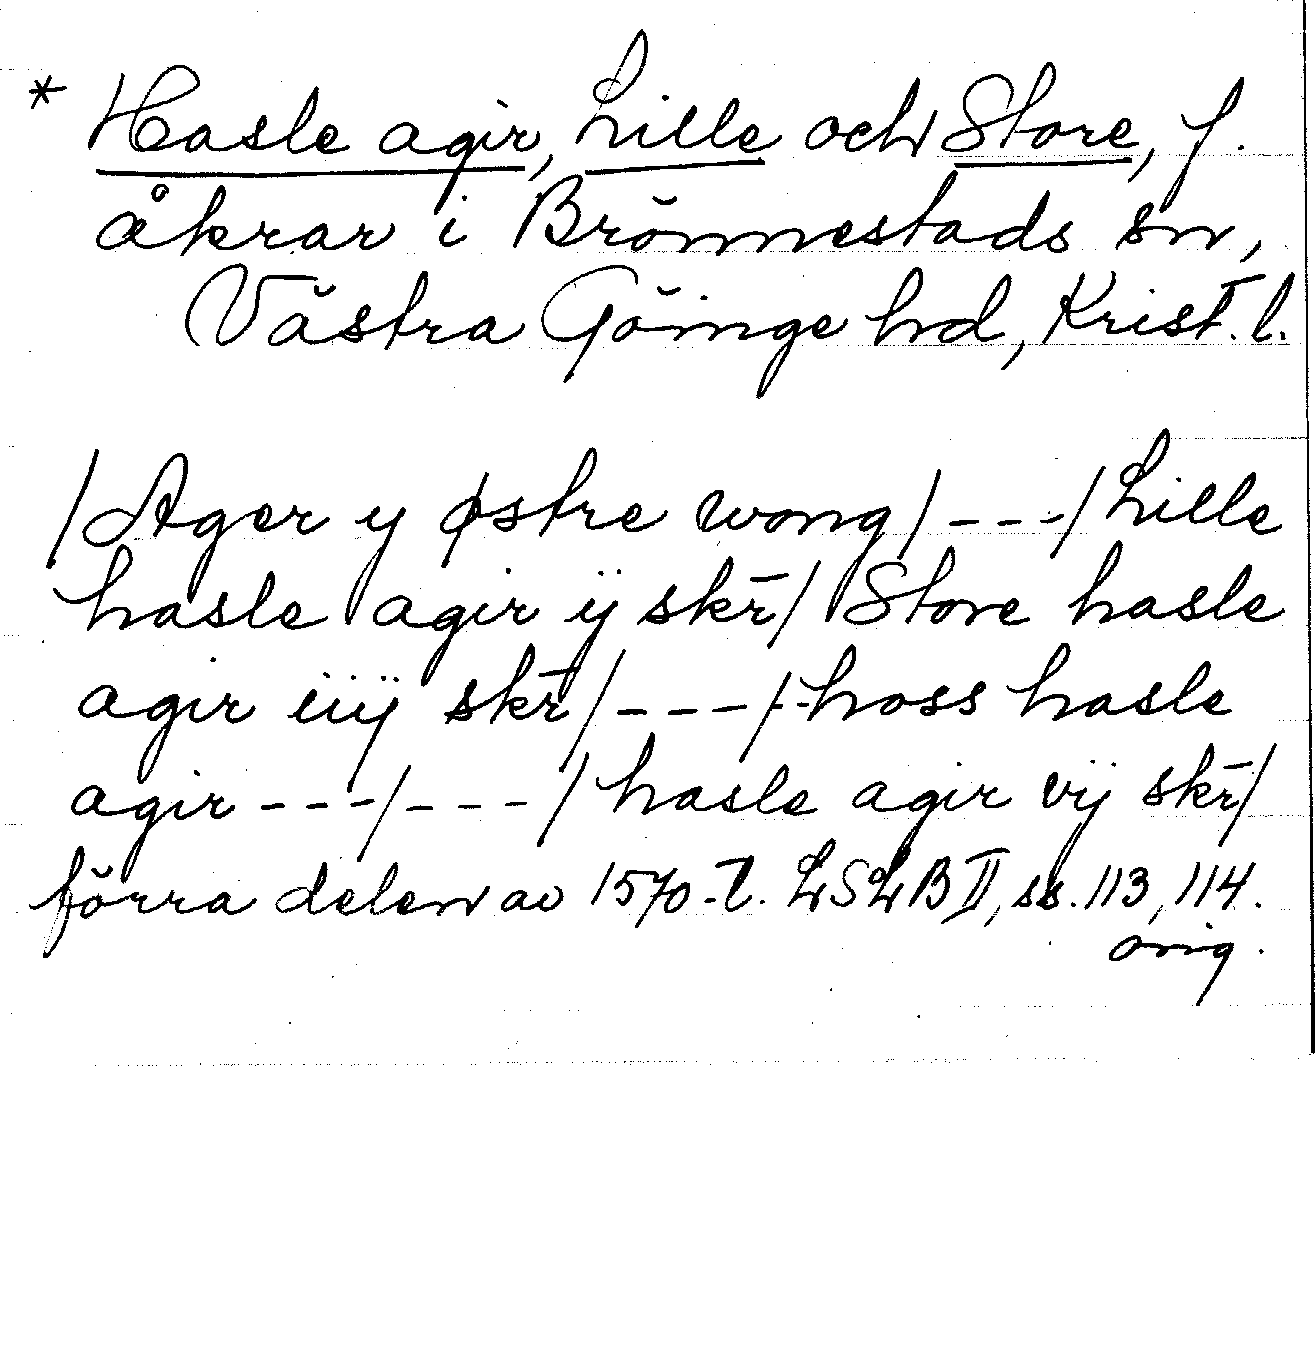 * Hasle agir, Lille och Store, f.
åkrar i Brönnestads sn,
Västra Göinge hd, Krist. l.
/Ager y østre wong/---/Lille
hasle agir ÿ skr̄/ Store hasle
agir iiÿ skr̄/---/--hoss hasle
agir---/---/hasle agir vÿ skr̄/
förra delen av 1570-t. LSLB II, ss. 113, 114.
orig.